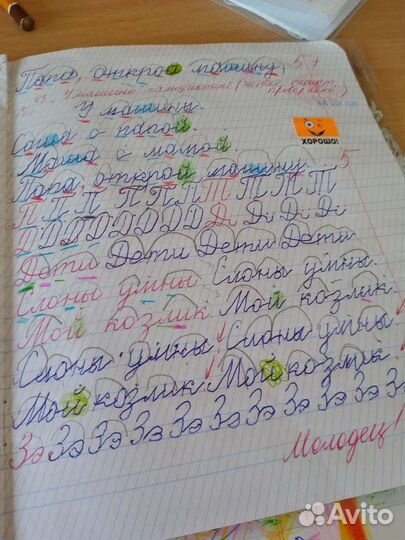 Папа, открой машину. 5+
У машины.
Саша с папой.
ХОРОШО!
Маша с мамой.
Папа, открой машину. 5
П П П П П П Т Т Т Т
Д Д Д Д Д Д Д Ди Ди Ди Ди
Дети Дети Дети Дети
Слоны умны. Слоны умны.
Мой козлик. Мой козлик.
Слоны умны. Слоны умны.
Мой козлик. Мой козлик.
Зэ Зэ Зэ Зэ Зэ Зэ Зэ Зэ Зэ З
Молодец!
Avito